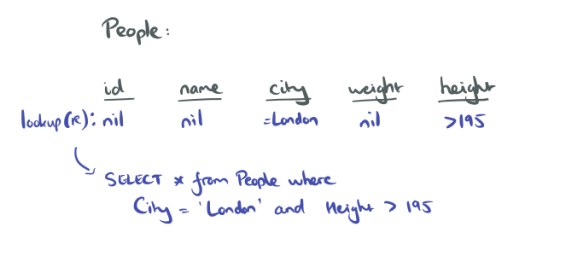 People:
id name city weight height
lookup(r): nil nil =London nil >195
SELECT * from People where
City = 'London' and Height > 195